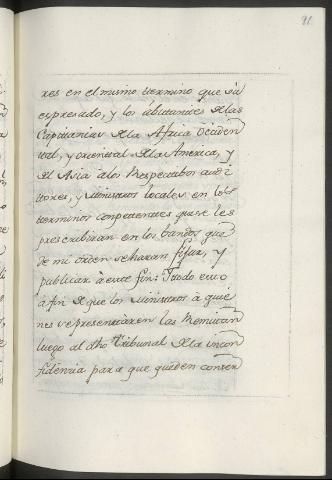 91
res en el mismo termino que vá
espresado, y los abitantes de las
Capitanias de la Africa Occiden
tal, y oriental de la America, y
del Asia a los Respectibos audi
tores, y Ministros locales en los
terminos conpetentes que se les
prescribiran en los bandos que
de mi orden se haran fijar, y
publicar à este fin: Todo esto
à fin de que los Ministros à quie
nes se presentàren las Remitan
luego al dho tribunal de la incon
fidencia para que queden conser